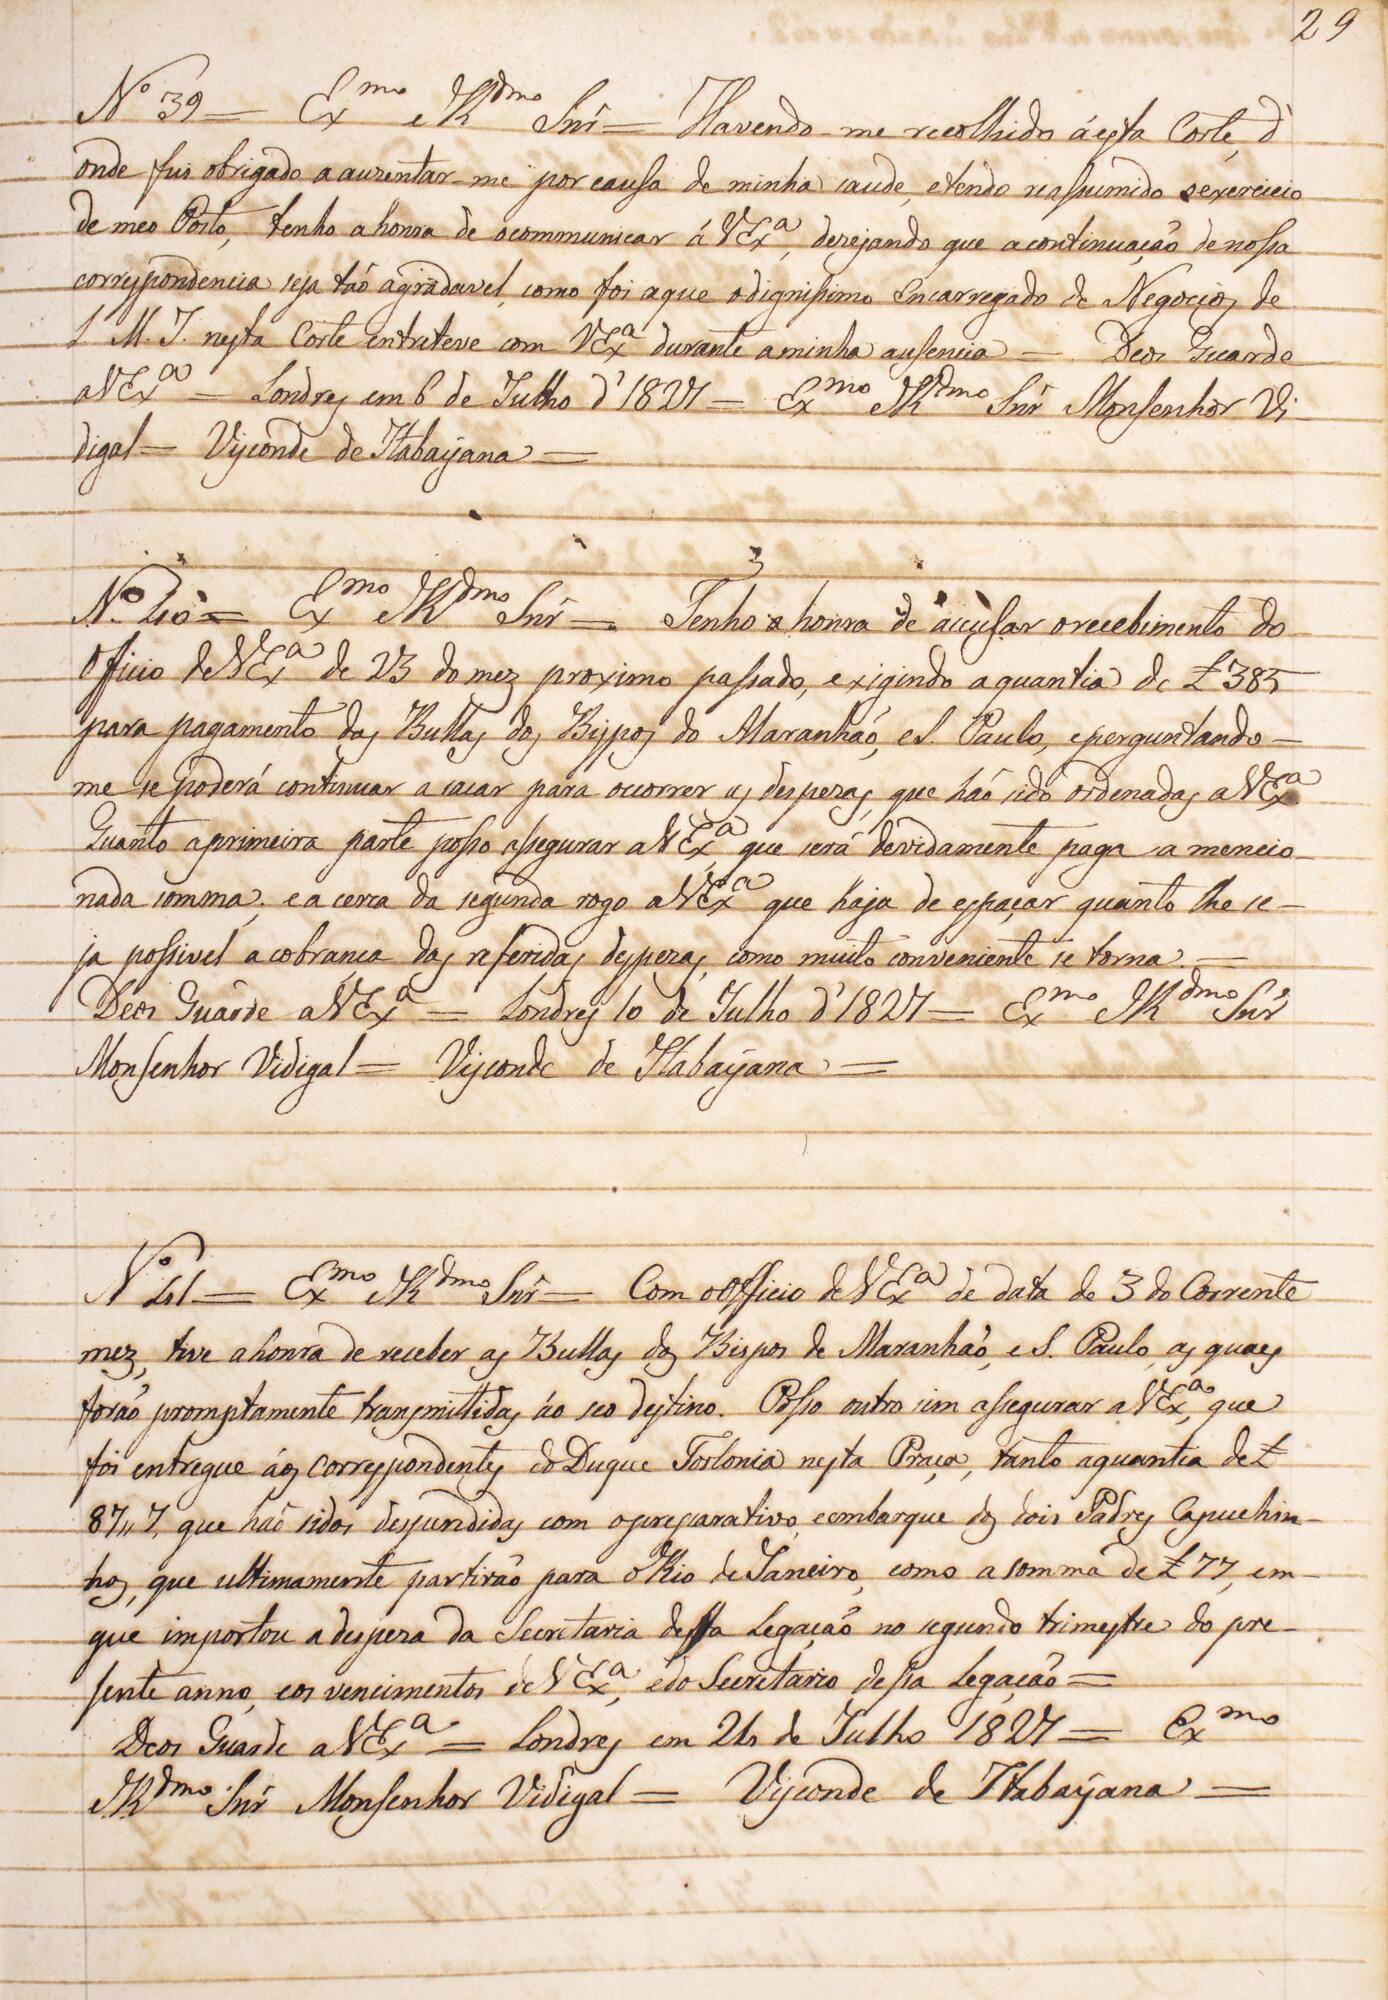 29
Nº 39 = Exmo e Rdmo Snr = Havendo-me recolhido á esta Corte, d'
onde fui obrigado a auzentar-me por causa de minha saude, e tendo reassumido o exercicio
de meo Posto, tenho a honra de o communicar á VExa, dezejando que a continuação de nossa
correspondencia seja táo agradavel, como foi a que o dignissimo Encarregado de Negocios de
S. M. I. nesta Corte entreteve com VExa durante a minha ausencia = Deos Guarde
a VExa = Londres em 6 de Julho d'1827 = Exmo e Rdmo Snr Monsenhor Vi
digal = Visconde de Itabayana =
Nº 40 = Exmo e Rdmo Snr = Tenho a honra de accusar o recebimento do
Officio de VExa de 23 do mez proximo passado, exigindo a quantia de £ 385
para pagamento das Bullas dos Bispos do Maranháo, e S. Paulo, e perguntando-
me se poderá continuar a sacar para occorrer as despezas, que háo sido ordenadas a VExa
Quanto a primeira parte posso assegurar a VExa, que será devidamente paga a mencio-
nada somma; e a cerca da segunda rogo a VExa que haja de espaçar quanto lhe se-
ja possivel a cobranca das referidas despezas, como muito conveniente se torna. =
Deos Guarde a VExa = Londres 10 de Julho d'1827 = Exmo e Rdmo Snr
Monsenhor Vidigal = Visconde de Itabayana =
Nº 41 = Exmo e Rdmo Snr = Com o Officio de VExa de data de 3 do Corrente
mez, tive a honra de receber as Bullas dos Bispos de Maranháo, e S. Paulo, as quaes
foráo promptamente transmittidas áo seo destino. Posso outro sim assegurar a VExa, que
foi entregue áos Correspondentes do Duque Torlonia nesta Praça, tanto a quantia de £
87,, 7, que háo sidos despendidas com os preparativos, e embarque dos dois Padres Capuchin-
hos, que ultimamente partiráo para o Rio de Janeiro, como a somma de £ 77, em-
que importou a despeza da Secretaria dessa Legaçáo no segundo trimestre do pre-
sente anno, e os vencimentos de VExa, e do Secretario dessa Legaçáo =
Deos Guarde a VExa = Londres em 24 de Julho 1827 = Exmo
e Rdmo Snr Monsenhor Vidigal = Visconde de Itabayana =